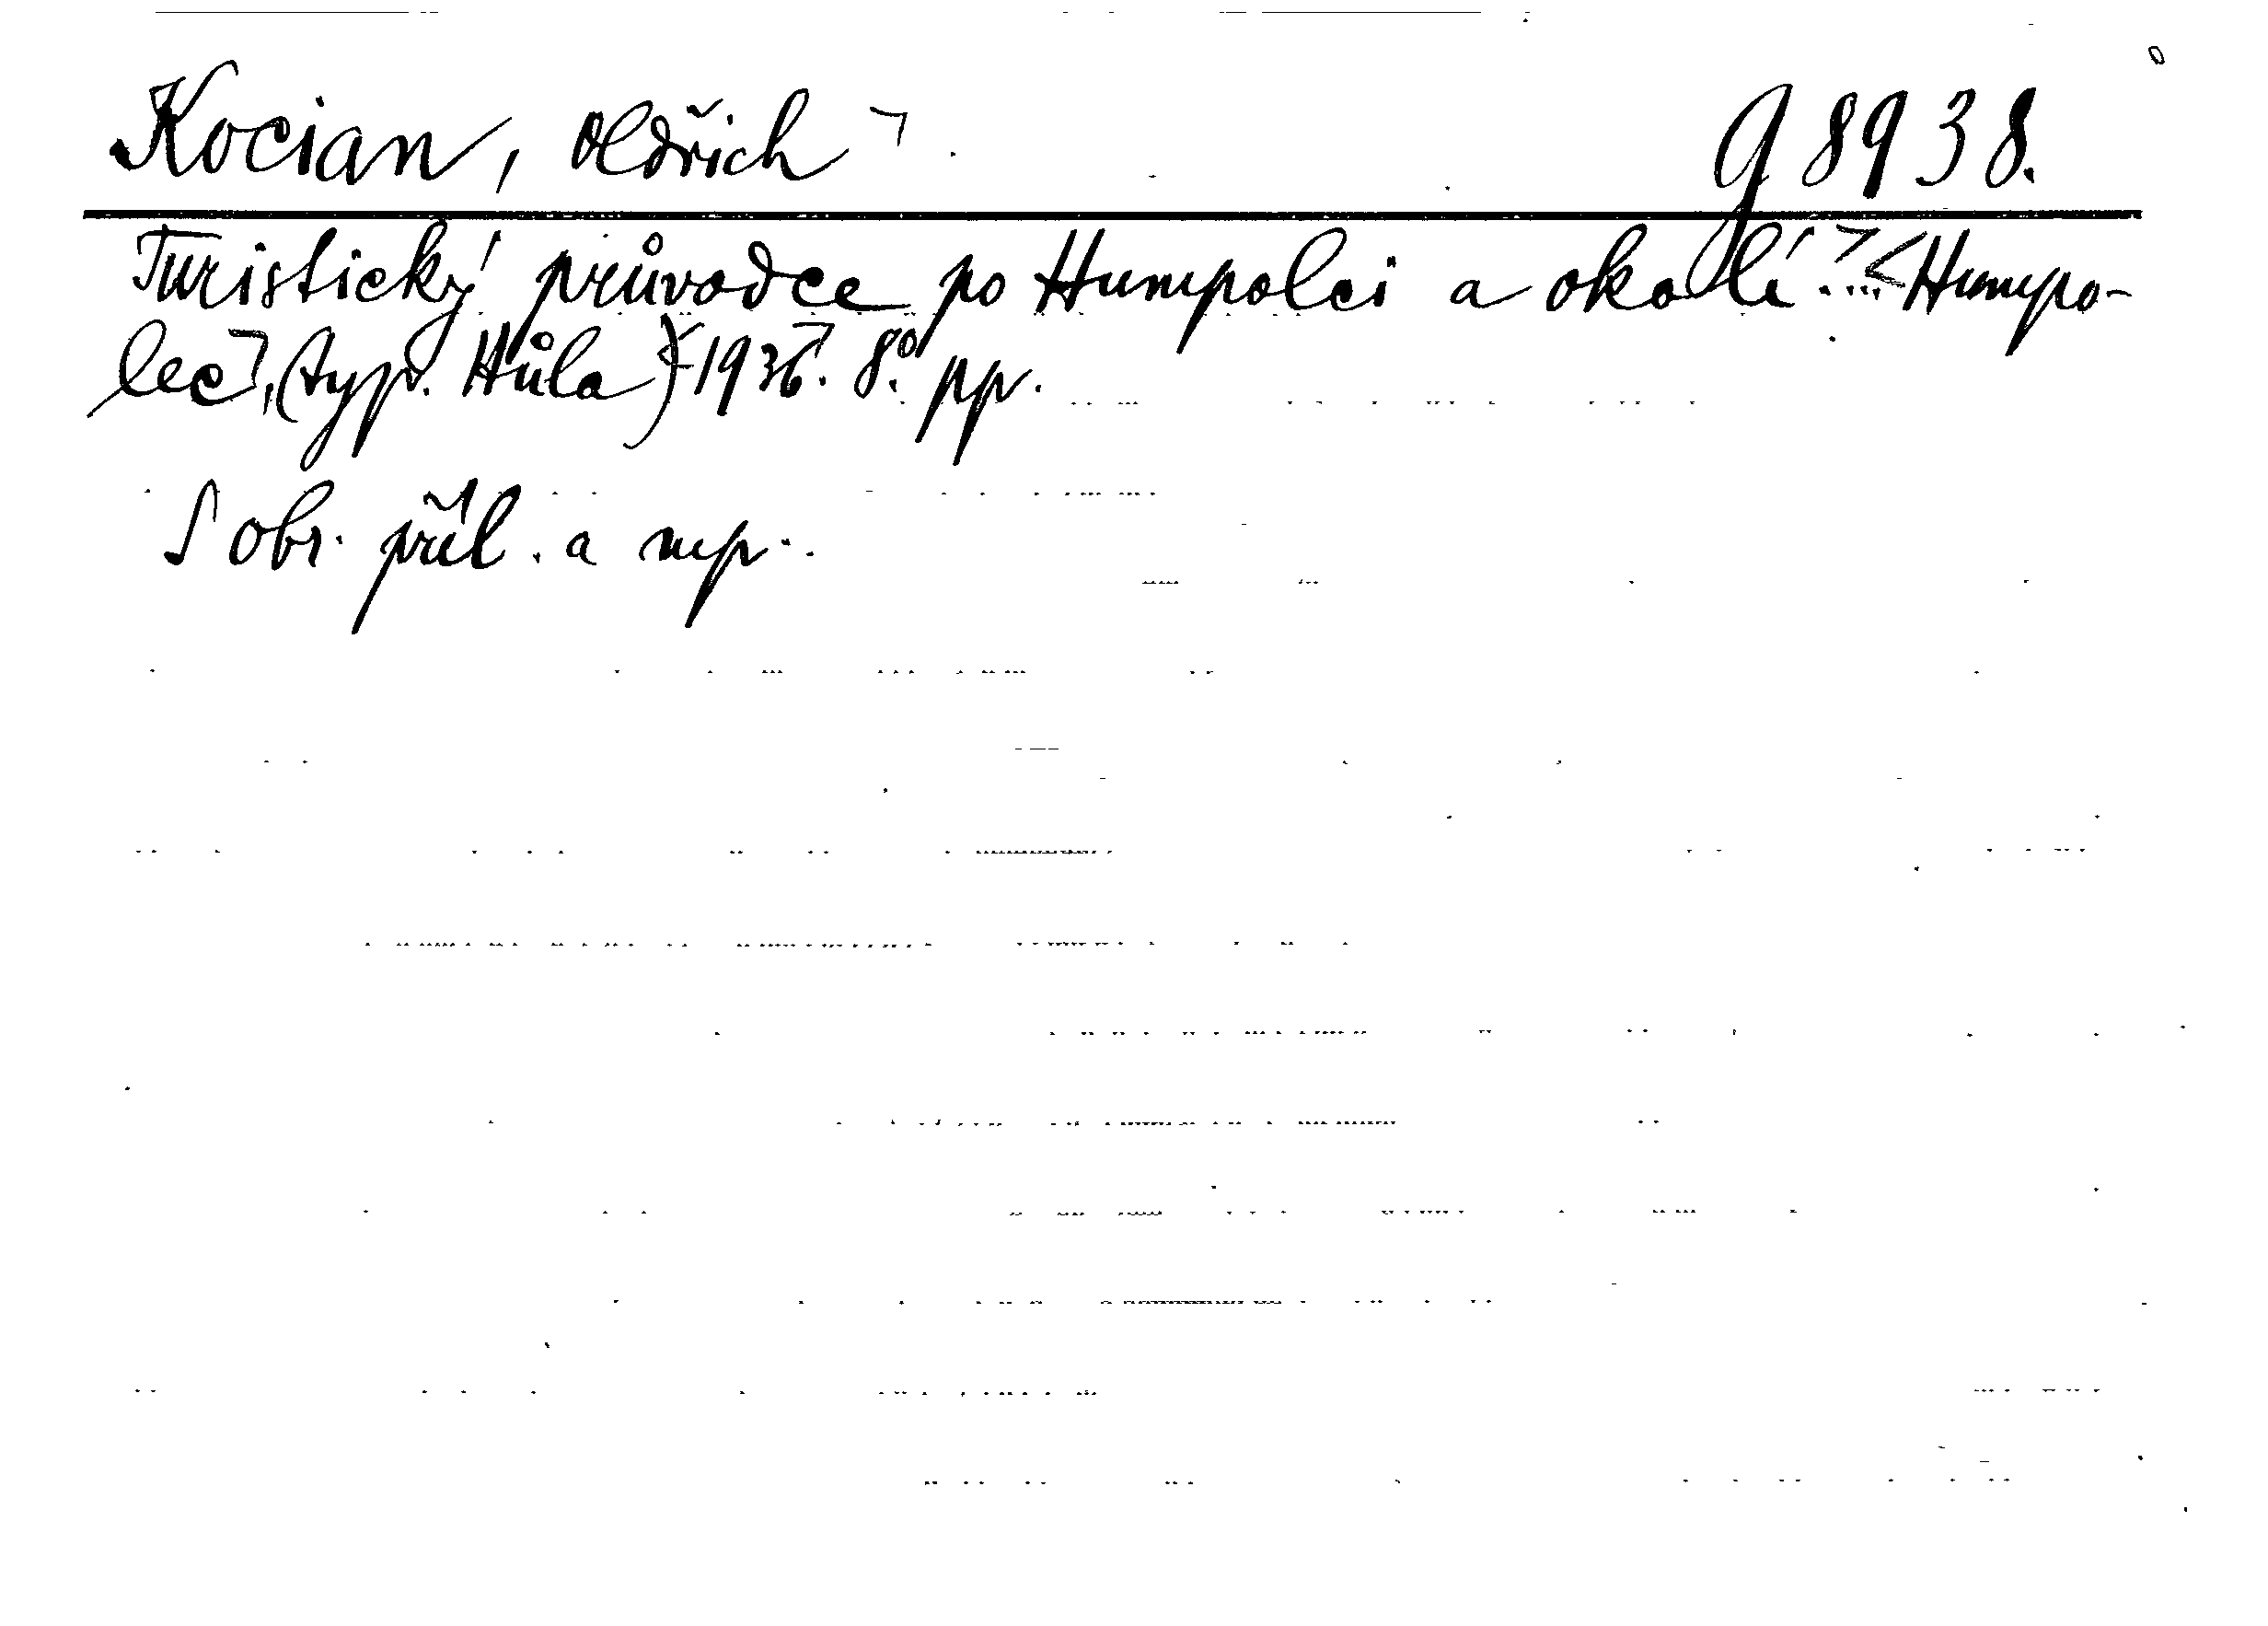 Kocian, Oldřich ¬ g 8938.
Turistický průvodce po Humpolci a okolí. ... <Humpo-
lec>, (typ. Hůla) <1936>. 8.° pp.
S obr. příl. a mp..